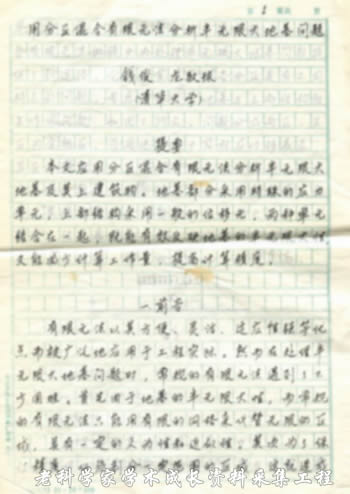 用分区混合有限元法分析半无限大地基问题
钱俊 龙驭球
(清华大学)
提要
本文应用分区混合有限元法分析半无限大
地基及其上建筑物。地基部分采用特殊的应力
单元,上部结构采用一般的位移元,两种单元
结合在一起,既能有效反映地基的半无限大性,
又能减少计算工作量,提高计算精度。
一 前言
有限元法以其方便、灵活、适应性强等优
点而被广泛地应用于工程实际。然而在处理半
无限大地基问题时,常规的有限元法遇到了不
少困难。首先由于地基的半无限大性,而常规
的有限元法只能用有限的网格来代替无限的区
域,具有一定的人为性和近似性;其次为了保
老科学家学术成长资料采集工程